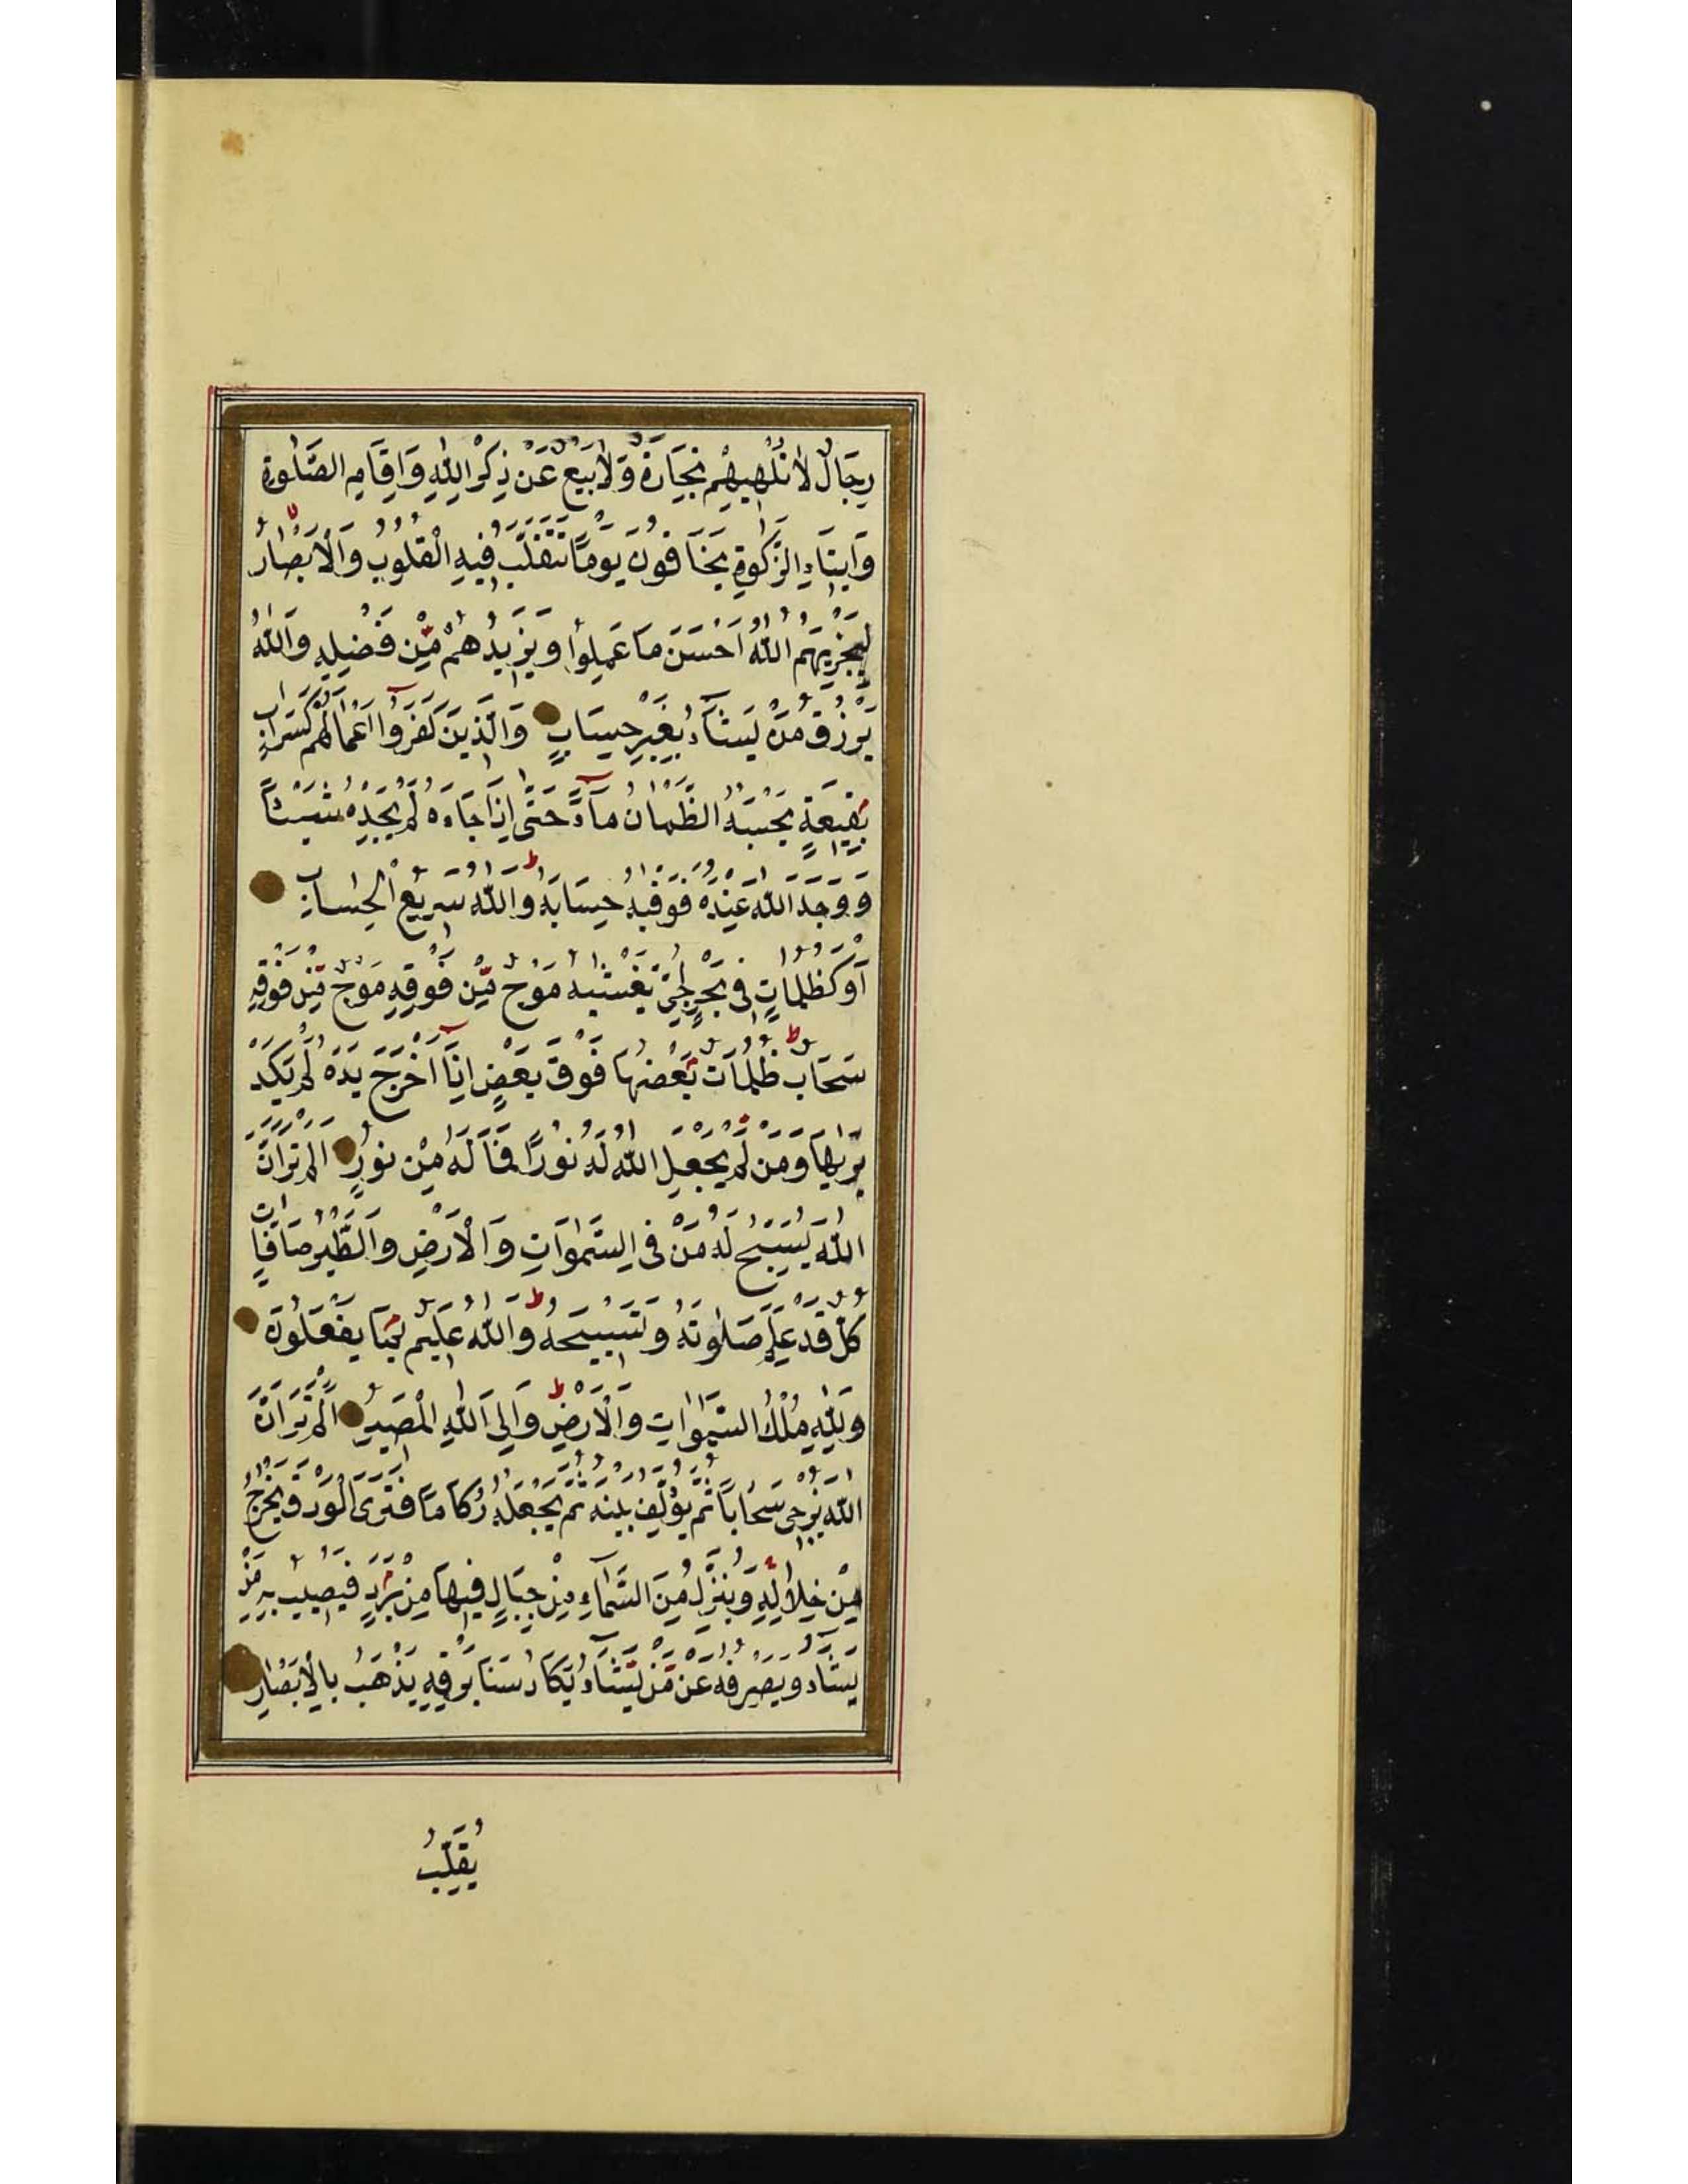 رِجَالٌ لَا تُلْهِيهِمْ تِجَارَةٌ وَلَا بَيْعٌ عَنْ ذِكْرِ اللّٰهِ وَاِقَامِ الصَّلٰوةِ
وَاِيتَاءِ الزَّكٰوةِ يَخَافُونَ يَوْمًا تَتَقَلَّبُ فِيهِ الْقُلُوبُ وَالْاَبْصَارُ ط
لِيَجْزِيَهُمُ اللّٰهُ اَحْسَنَ مَا عَمِلُوا وَيَزِيدُهُمْ مِّنْ فَضْلِهِ وَاللّٰهُ
يَرْزُقُ مَنْ يَشَآءُ بِغَيْرِ حِسَابٍ وَالَّذِينَ كَفَرُوآ اَعْمَالُهُمْ كَسَرَابٍ
بِقِيعَةٍ يَحْسَبُهُ الظَّمْاٰنُ مَآءً حَتّٰى اِذَا جَاءَهُ لَمْ يَجِدْهُ شَيْئًا
وَوَجَدَ اللّٰهَ عِنْدَهُ فَوَفّٰيهُ حِسَابَهُ ط وَاللّٰهُ سَرِيعُ الْحِسَابِ
اَوْ كَظُلُمَاتٍ فِى بَحْرٍ لُجِّىٍّ يَغْشٰيهُ مَوْجٌ مِّنْ فَوْقِهِ مَوْجٌ مِّنْ فَوْقِهِ
سَحَابٌ ط ظُلُمَاتٌ بَعْضُهَا فَوْقَ بَعْضٍ اِذَآ اَخْرَجَ يَدَهُ لَمْ يَكَدْ
يَرٰيهَا وَمَنْ لَمْ يَجْعَلِ اللّٰهُ لَهُ نُورًا فَمَا لَهُ مِنْ نُورٍ اَلَمْ تَرَ اَنَّ
اللّٰهَ يُسَبِّحُ لَهُ مَنْ فِى السَّمٰوَاتِ وَالْاَرْضِ وَالطَّيْرُ صَافَّاتٍ
كُلٌّ قَدْ عَلِمَ صَلٰوتَهُ وَتَسْبِيحَهُ ط وَاللّٰهُ عَلِيمٌ بِمَا يَفْعَلُونَ
وَلِلّٰهِ مُلْكُ السَّمٰوَاتِ وَالْاَرْضِ ط وَاِلَى اللّٰهِ الْمَصِيرُ اَلَمْ تَرَ اَنَّ
اللّٰهَ يُزْجِى سَحَابًا ثُمَّ يُؤَلِّفُ بَيْنَهُ ثُمَّ يَجْعَلُهُ رُكَامًا فَتَرَى الْوَدْقَ يَخْرُجُ
مِنْ خِلَالِهِ وَيُنَزِّلُ مِنَ السَّمَآءِ مِنْ جِبَالٍ فِيهَا مِنْ بَرَدٍ فَيُصِيبُ بِهِ مَنْ
يَشَآءُ وَيَصْرِفُهُ عَنْ مَّنْ يَشَآءُ يَكَادُ سَنَا بَرْقِهِ يَذْهَبُ بِالْاَبْصَارِ
يُقَلِّبُ